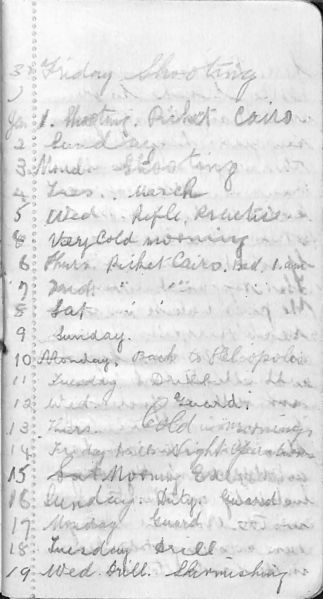 31 Friday Shooting
Jan 1. Shooting. Picket Cairo
2 Sunday
3 Mond. Shooting
4 Tues. March
5 Wed. Rifle Practise
Very Cold morning
6 Thurs. Picket Cairo, Bed, 1 am
7
8 Sat
9 Sunday.
10 Monday. Back to Heliopolis
11 Tuesday
12 Wed. Guard.
13 Thurs. Cold mornings
14 Friday Drill Night Operations
15 Sat Morning
16 Sunday. Duty. Guard
17 Monday Guard
18 Tuesday Drill.
19 Wed. Drill. Skirmishing